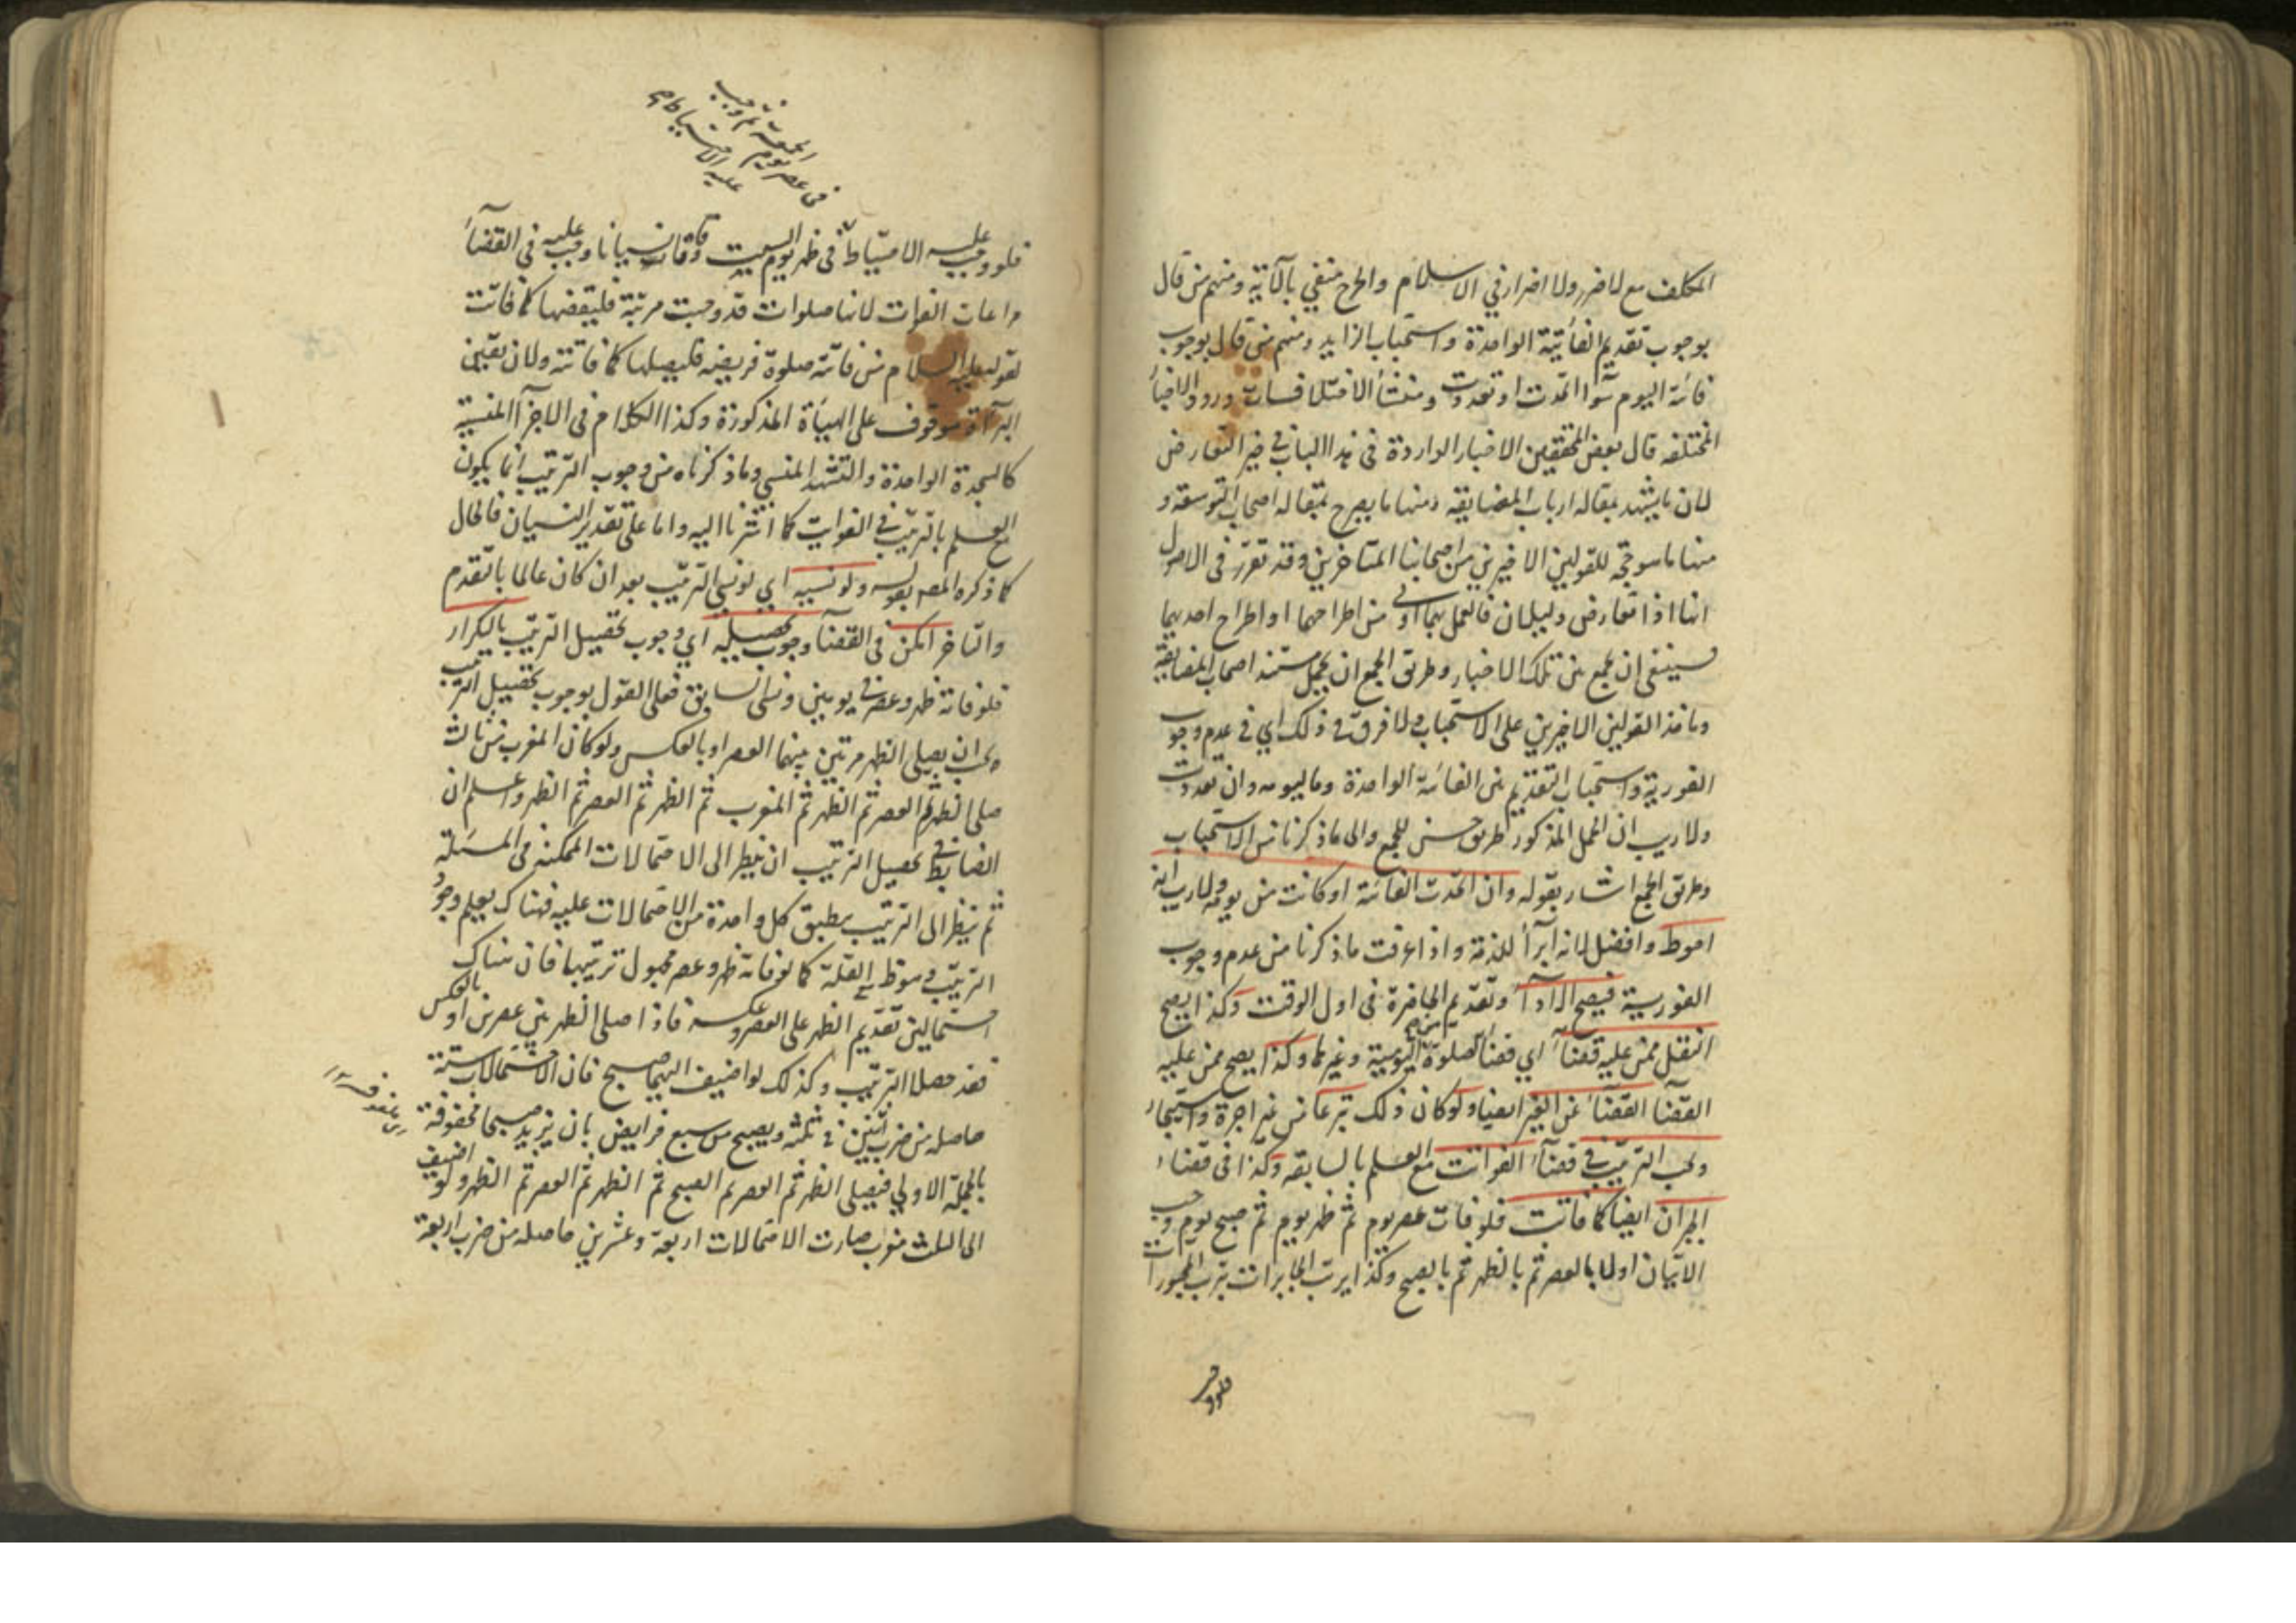 المكلف مع لا ضرر ولا اضرار في الاسلام والحرج منفي بالآية ومنهم من قال
بوجوب تقديم الفائتة الواحدة واستحباب الزايد ومنهم من قال بوجوب
فائتة اليوم سوآ اتحدت او تعددت ومنشأ الاختلافات ورود الاخبار
المختلفه قال بعض المحققين الاخبار الواردة فى هذا الباب في حيز التعارض
لان ما يشهد بمقاله ارباب المضايقه ومنها ما يصرح بمقاله اصحاب التوسعه و
منها ما هو حجة للقولين الاخيرين من اصحابنا المتاخرين وقد تقرر فى الاصول
انه اذا تعارض دليلان فالعمل بهما اولى من اطراحهما او اطراح احدهما
فينبغى ان يجمع بين تلك الاخبار وطريق الجمع ان يحمل مستند اصحاب المضايقة
وماخذ القولين الاخيرين على الاستحباب ولا فرق في ذلك اي في عدم وجوب
الفورية واستحباب التقديم بين الفائتة الواحدة وما ليومه وان تعددت
ولا ريب ان الحمل المذكور طريق حسن للجمع والى ما ذكرنا من الاستحباب
وطريق الجمع اشار بقوله وان اتحدت الفائتة او كانت من يومه ولا ريب انه
احوط وافضل لانه ابرأ للذمة واذا عرفت ما ذكرنا من عدم وجوب
الفورية فيصح الادآء وتقديم الحاضرة فى اول الوقت وكذا يصح
التنفل ممن عليه قضآء اي قضآء الصلوة اليومية وغيرها وكذا يصح ممن عليه
القضآء القضآء عن الغير ايضا ولو كان ذلك تبرعا من غير اجرة واستيجار
ويجب الترتيب في قضآء الفوائت مع العلم بالسابقه وكذا فى قضآء
الجبران ايضا كما فاتت فلو فات عصر يوم ثم ظهر يوم ثم صبح يوم وجب
الاتيان اولا بالعصر ثم بالظهر ثم بالصبح وكذا يرتب الجابرات بترتب المجبورات
فلو وجب
فى عصر يوم
الجمعة ثم وجب
عليه الاحتياط
فلو وجب عليه الاحتياط فى ظهر يوم السبت وفاتا نسيانا وجب عليه في القضآء
مراعات الفوات لانها صلوات قد وجبت مرتبة فليقضها كما فاتت
لقوله عليه السلام من فاتته صلوة فريضه فليصلها كما فاتته ولان يقين
البرآءة موقوف على الهيأة المذكورة وكذا الكلام فى الاجزآء المنسية
كالسجدة الواحدة والتشهد المنسي وما ذكرناه من وجوب الترتيب انما يكون
مع العلم بالترتيب في الفوايت كما اشرنا اليه واما على تقدير النسيان فالحال
كما ذكره المصه بقوله ولو نسيه اي لو نسي الترتيب بعد ان كان عالما بالتقدم
والتاخر امكن فى القضآء وجوب تحصيله اي وجوب تحصيل الترتيب بالتكرار
فلو فاته ظهر وعصر في يومين ونسى السابق فعلى القول بوجوب تحصيل الترتيب
يجب ان يصلى الظهر مرتين بينهما العصر او بالعكس ولو كان المغرب من ثالث
صلى الظهر ثم العصر ثم الظهر ثم المغرب ثم الظهر ثم العصر ثم الظهر واعلم ان
الضابط في تحصيل الترتيب ان ينظر الى الاحتمالات الممكنه فى المسئلة
ثم ينظر الى الترتيب بطبق كل واحدة من الاحتمالات عليه فهناك يعلم وجود
الترتيب وسقوط العلة كما لو فاته ظهر وعصر مجهول ترتيبها فان هناك
احتمالين تقديم الظهر على العصر وعكسه فاذا صلى الظهر بين عصرين او بالعكس
فقد حصل الترتيب وكذلك لو اضيف اليهما صبح فان الاحتمالات ستة
حاصله من ضرب اثنين في ثلثه ويصح من سبع فرايض بان يزيد صبحا محفوفة
بالجملة الاولى فيصلى الظهر ثم العصر ثم الظهر ثم الصبح ثم الظهر ثم العصر ثم الظهر ولو اضيف
الى الثلث مغرب صارت الاحتمالات اربعة وعشرين حاصله من ضرب اربعة